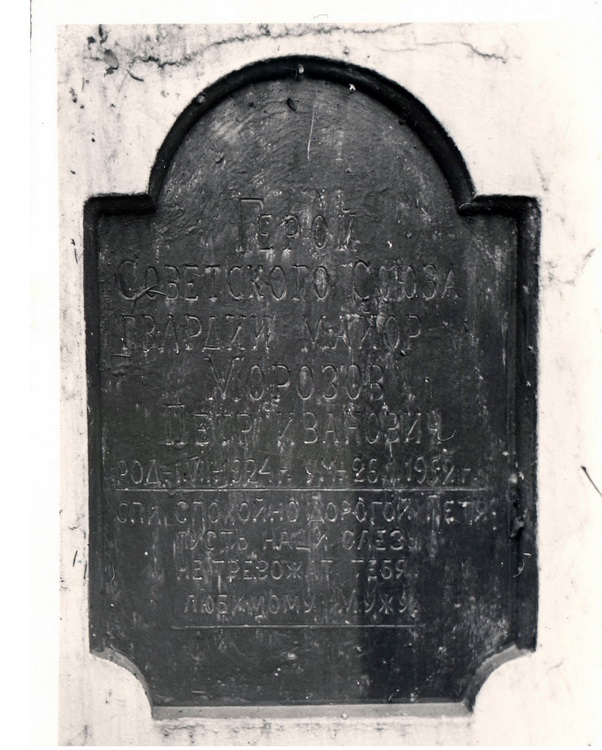 Герой
Советского Союза
гвардии майор
Морозов
Петр Иванович
1924 г. ум. 1952 г.
спи спокойно дорогой Петя
пусть наши слезы
не тревожат тебя
любимому мужу